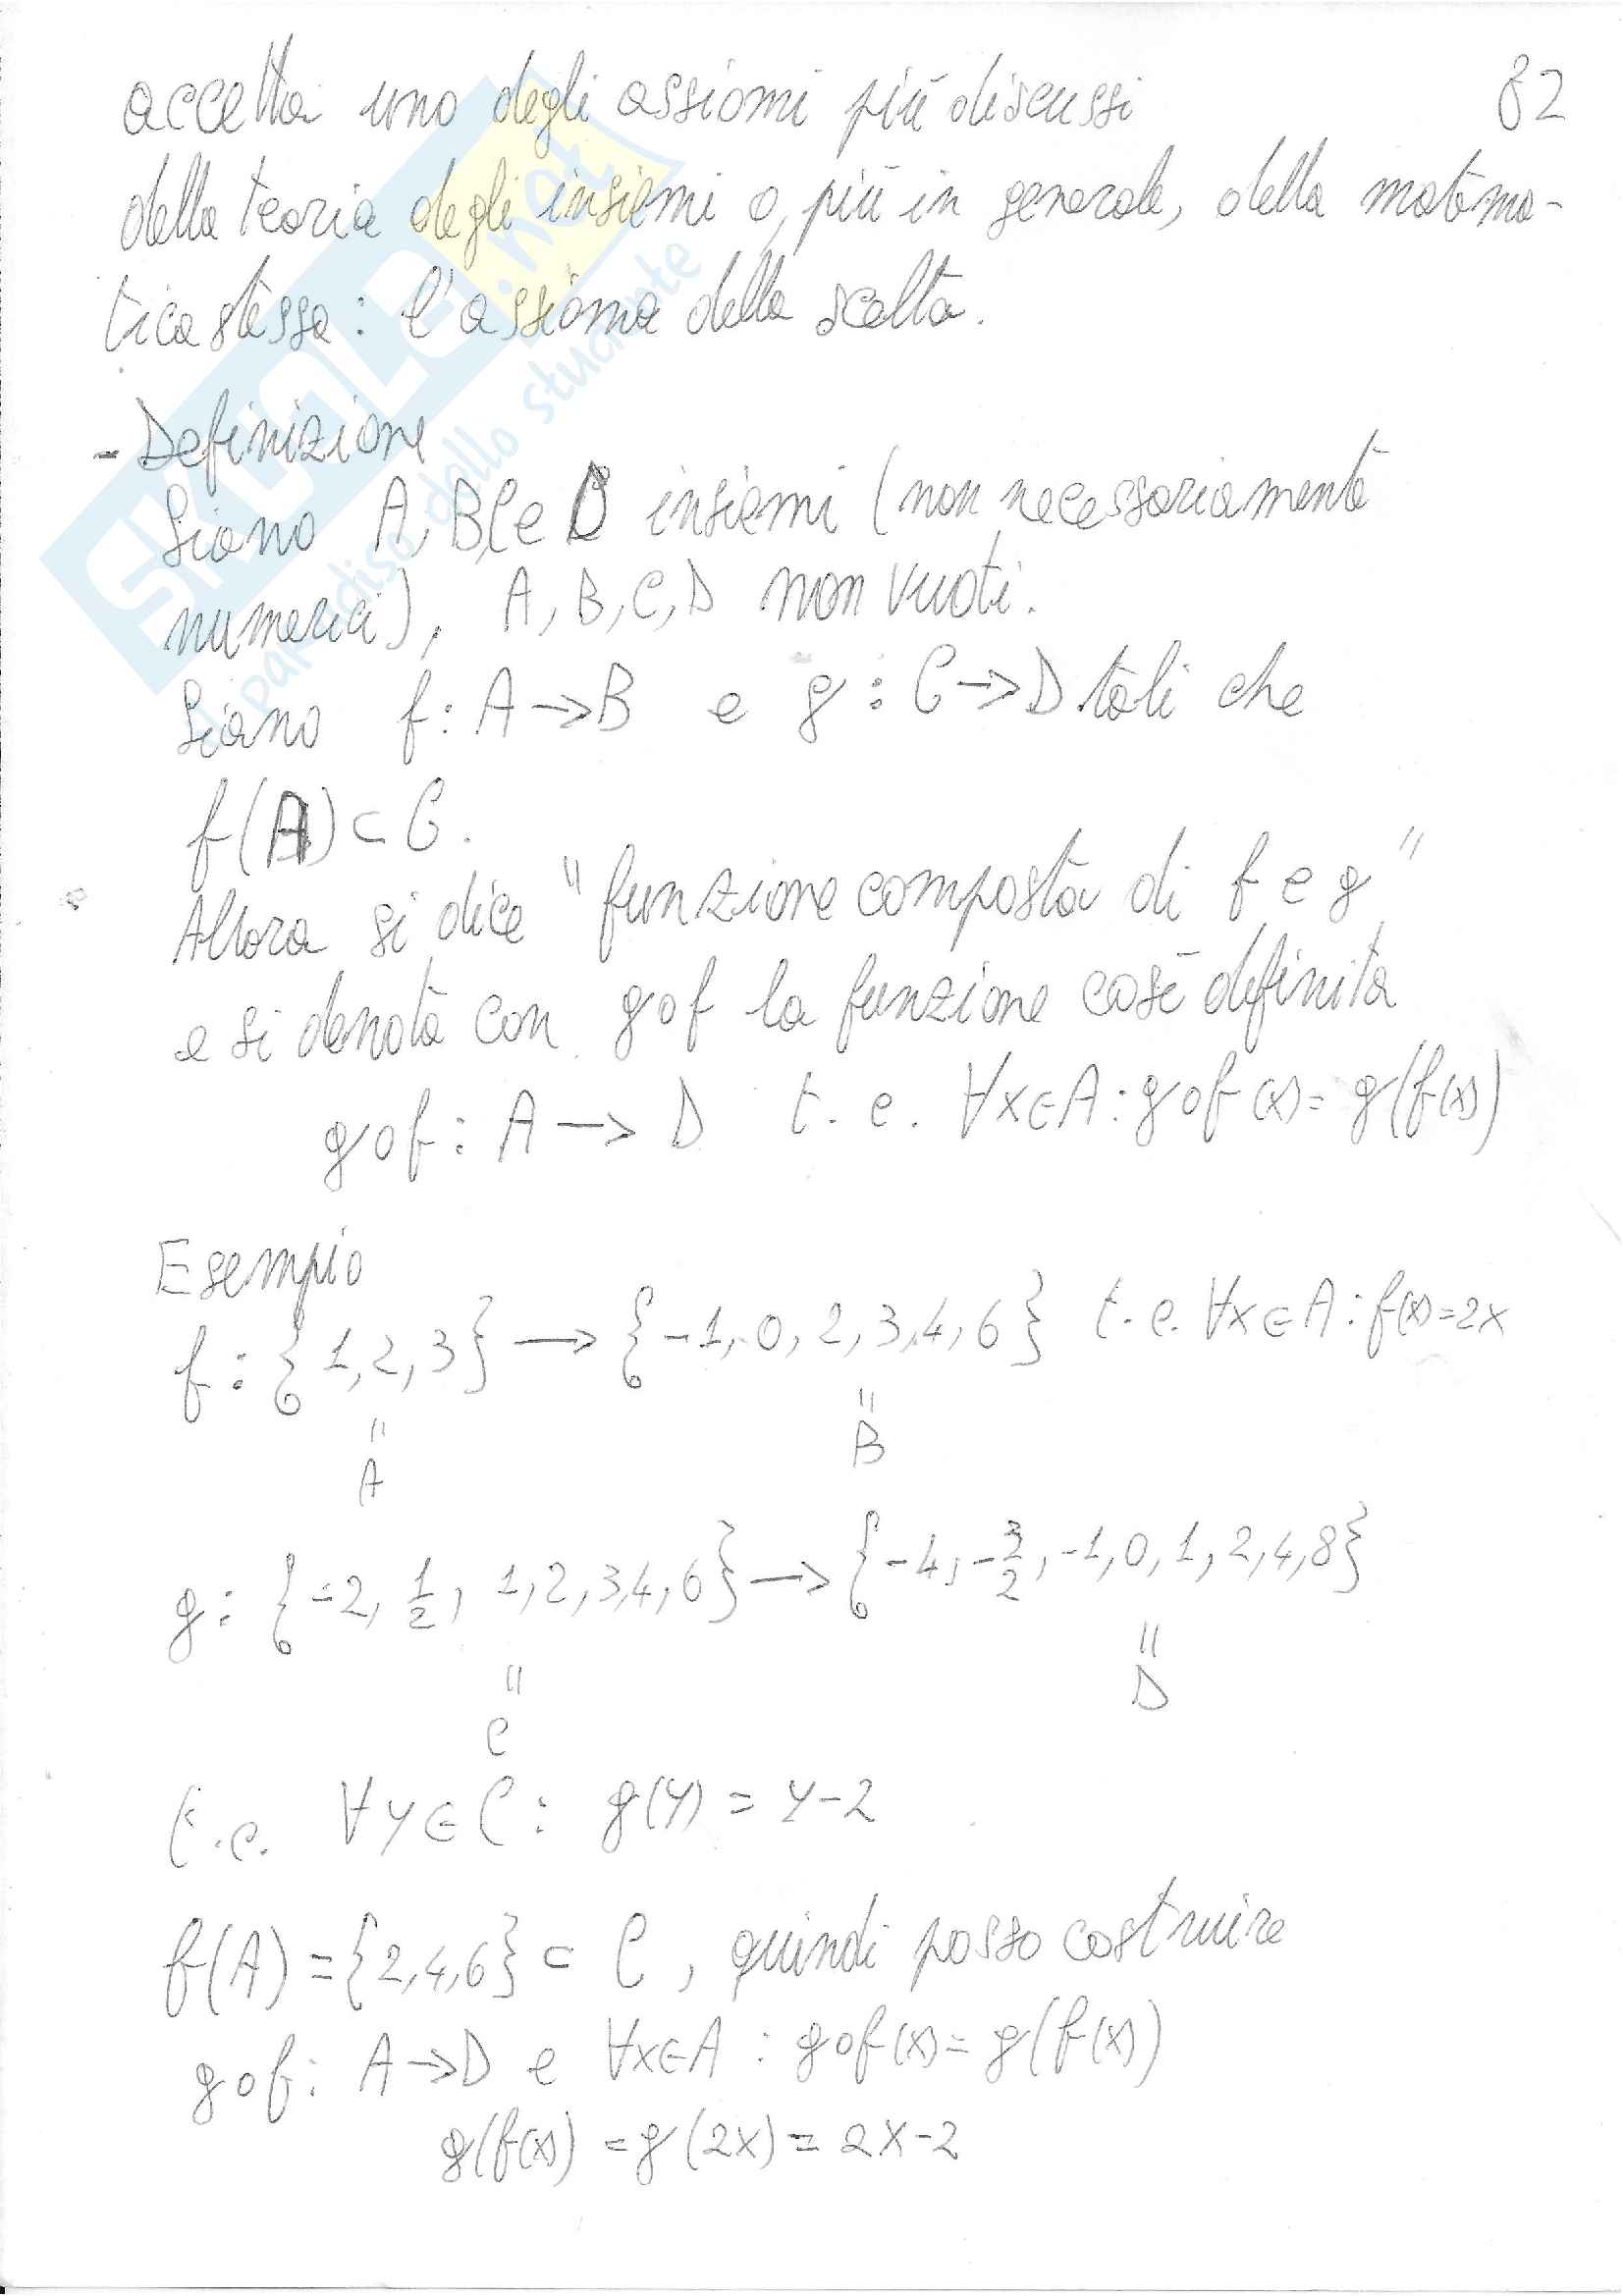 accetta uno degli assiomi più discussi 82
della teoria degli insiemi o, più in generale, della matema-
tica stessa: l'assioma della scelta.
- Definizione
Siano A, B, C e D insiemi (non necessariamente
numerici), A, B, C, D non vuoti.
Siano f: A → B e g: C → D tali che
f(A) ⊂ C.
Allora si dice "funzione composta di f e g"
e si denota con g∘f la funzione così definita
g∘f: A → D t.c. ∀x∈A: g∘f(x) = g(f(x))
Esempio
f: {1, 2, 3} → {-1, 0, 2, 3, 4, 6} t.c. ∀x∈A: f(x)=2x
" "
A B
g: {-2, 1/2, 1, 2, 3, 4, 6} → {-4, -3/2, -1, 0, 1, 2, 4, 8}
" "
C D
t.c. ∀y∈C: g(y) = y-2
f(A) = {2, 4, 6} ⊂ C, quindi posso costruire
g∘f: A → D e ∀x∈A: g∘f(x) = g(f(x))
g(f(x)) = g(2x) = 2x-2
SKUOLA.net
il paradiso dello studente